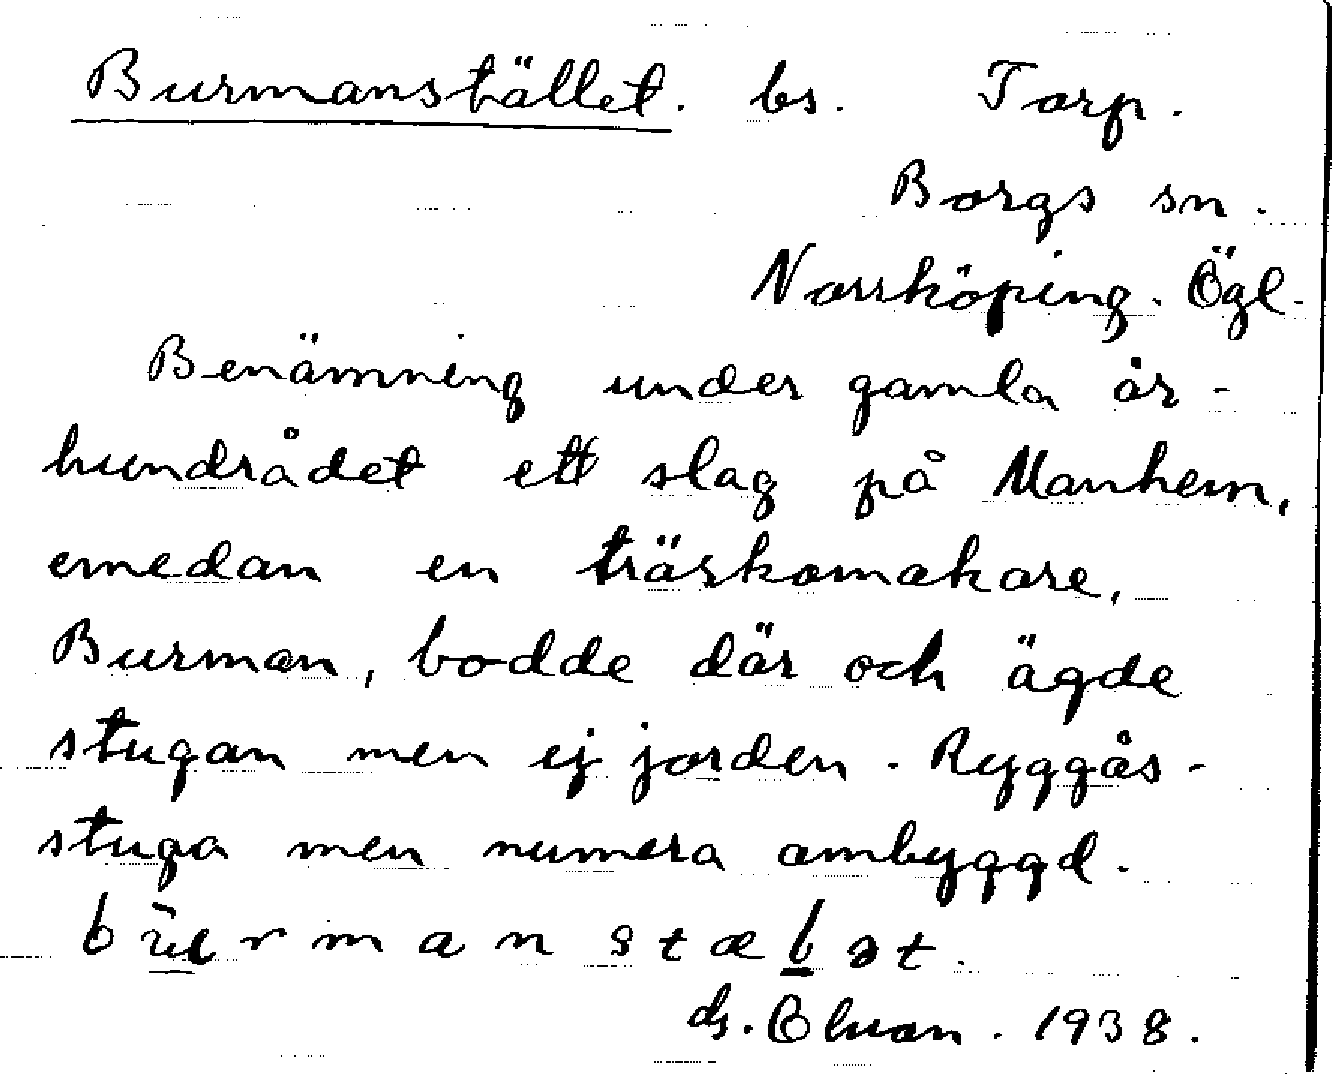 Burmanstället. bs. Torp.
Borgs sn.
Norrköping. Ögl.
Benämning under gamla år-
hundrådet ett slag på Manhem,
emedan en träskomakare,
Burman, bodde där och ägde
stugan men ej jorden. Ryggås-
stuga men numera ombyggd.
1938.